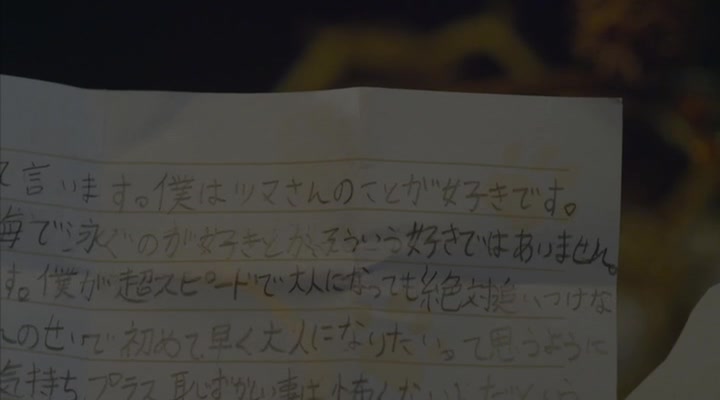 て言います。僕はツマさんのことが好きです。
海で泳ぐのが好きとか、そういう好きではありません。
す。僕が超スピードで大人になっても絶対追いつけな
んのせいで初めて早く大人になりたいって思うように
気持ち プラス 恥ずかしい事は 怖くない